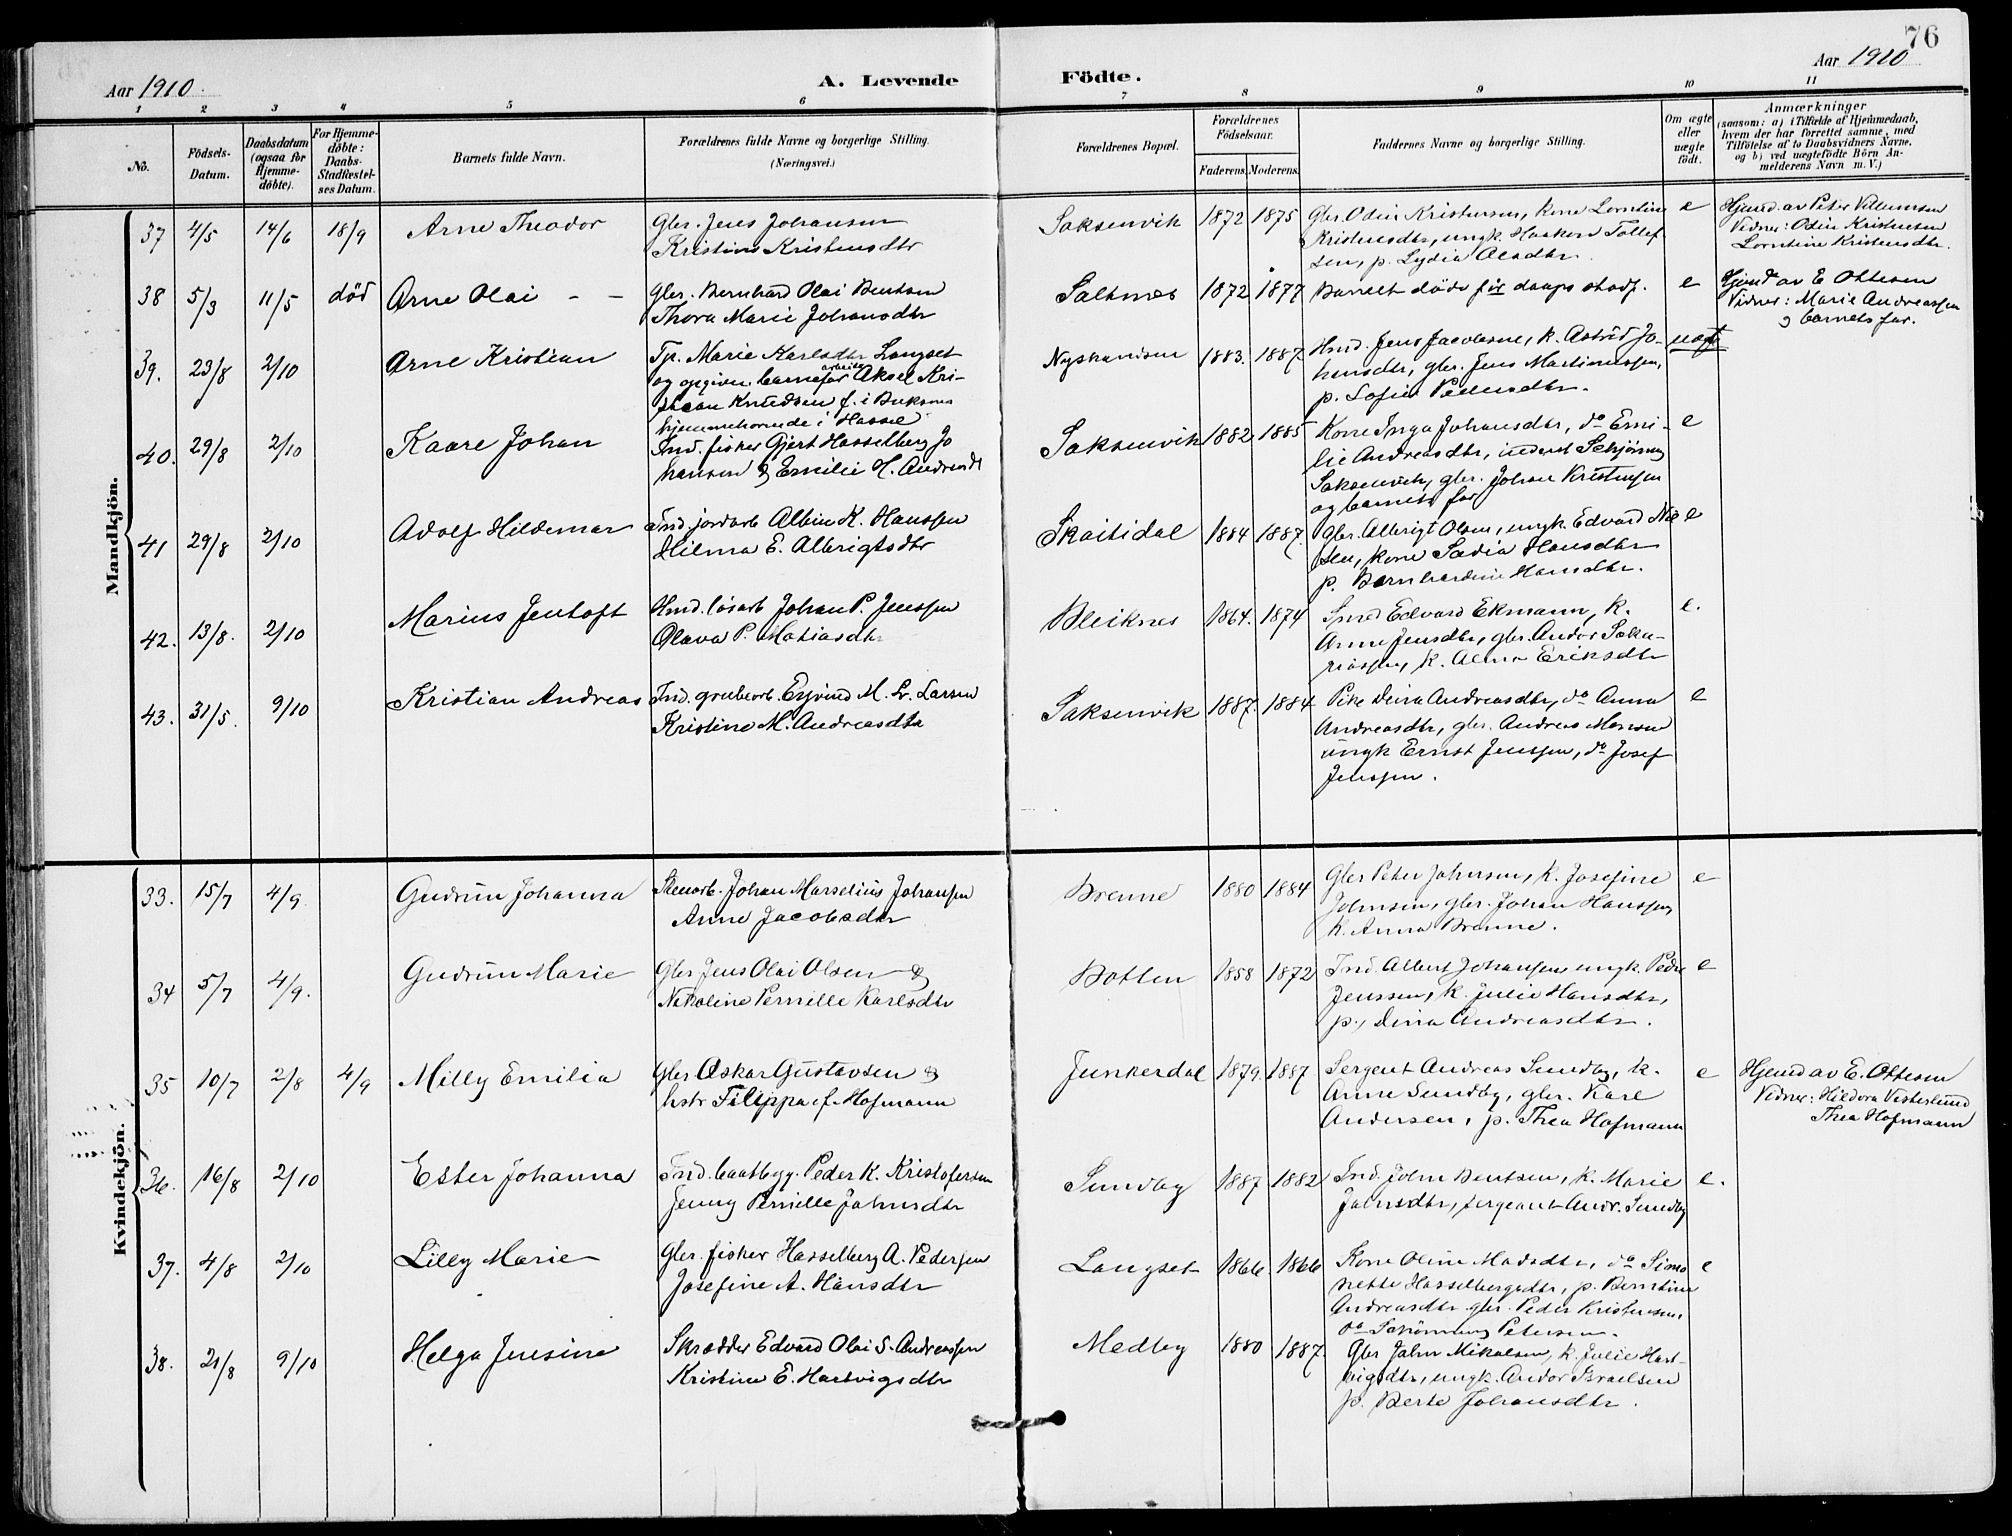 76
Aar 1910.
A. Levende Födte.
Aar 1910
1 2 3 4 5 6 7 8 9 10 11
No.
Födsels-Datum.
Daabsdatum (ogsaa for Hjemmedöbte).
For Hjemmedöbte: Daabs-Stadfæstelses Datum.
Barnets fulde Navn.
Forældrenes fulde Navne og borgerlige Stilling.
(Næringsvei.)
Forældrenes Bopæl.
Forældrenes Födselsaar.
Faderens. Moderens.
Faddernes Navne og borgerlige Stilling.
Om ægte eller uægte födt.
Anmærkninger
(saasom: a) i Tilfælde af Hjemmedaab,
hvem der har forrettet samme, med
Tilföielse af to Daabsvidners Navne.
og b) ved uægtefödte Börn Anmelderens Navn m. V.)
Mandkjön.
37 4/5 14/6 18/9 Arne Theodor
Gbr. Jens Johansen
Kristine Kristensdtr
Saksenvik 1872 1875
Gbr. Odin Kristensen, kone Lorntine
Kristensdtr, ungk. Haakon Tollef
sen, p. Lydia Olsdtr.
e
Hjemd. av Peter Villumsen
Vidner: Odin Kristensen
Lorntine Kristensdtr.
38 5/3 11/5 død Arne Olai - -
Gbr. Bernhard Olai Bentsen
Thora Marie Johansdtr
Saltnes 1872 1877
Barnet døde før daaps stadf.
e
Hjemd av E Ottesen
Vidner: Marie Andreassen
og barnets far.
39. 23/8 2/10 Arne Kristian
Tp. Marie Karlsdtr Langset
og opgiven barnefar arbeider Aksel Kri-
stian Knudsen f. i Buksnes
hjemmehørende i Hassel
1883. 1887
Ind. Jens Jacobsen, k. Astrid Jo-
hansdtr, gbr. Jens Martinussen,
p. Sofie Pedersdtr.
uegt
40. 29/8 2/10 Kaare Johan
Ind. fisker Gjert Hasselberg Jo
hansen & Emilie H. Andreasdtr
Saksenvik 1882 1885
Kone Inga Johansdtr, do Emi-
lie Andreasdtr, inderst Schjønning
Saksenvik, gbr. Johan Kristensen
og barnets far
e
41 29/8 2/10 Adolf Hildemar
Ind. jordarb Albin K. Hanssen
Hilma E. Albrigtsdtr
Skaitidal 1884 1887.
Gbr. Albrigt Olsen, ungk. Edvard Niel
sen, kone Sædia Hansdtr
p. Bernhardine Hansdtr.
e
42. 13/8. 2/10 Marius Jentoft
Ind. løsarb Johan P. Jenssen
Olava P. Matiasdtr
Bleiknes 1864. 1874
Smed Edvard Ekmann, k.
Anne Jensdtr, gbr. Andor Saka-
riassen, k. Alma Eriksdtr
e.
43. 31/5. 9/10 Kristian Andreas
Ind. grubearb. Eyvind M. Sv. Larsen
Kristine M. Andreasdtr
Saksenvik 1887. 1884
Pike Dina Andreasdtr, do Anna
Andreasdtr, gbr. Andreas Monsen
ungk Ernst Jenssen, do Josef
Jenssen.
e
Kvindekjön.
33. 15/7 4/9 Gudrun Johanna
Stenarb. Johan Marselius Johansen
Anne Jacobsdtr
Brenne 1880 1884
Gbr Peter Johnsen, k. Josefine
Johnsen, gbr. Johan Hanssen,
k. Anna Brenne.
e
34 5/7 4/9. Gudrun Marie
Gbr Jens Olai Olsen &
Nikoline Pernille Karlsdtr
Botten 1858 1872
Ind. Albert Johansen, ungk. Peder
Jenssen, k. Julie Hansdtr,
p., Dina Andreasdtr.
e
35 10/7 2/8 4/9 Milly Emilia
Gbr Oskar Gustavsen &
hstr Filippa f. Hofmann
Junkerdal 1879. 1887
Sergent Andreas Sundby, k.
Anne Sundby, gbr. Karl
Andersen, p. Thea Hofmann
e
Hjemd av E. Ottesen
Vidner: Hildora Vesterlund
Thea Hofmann
36. 16/8 2/10 Ester Johanna
Ind. baatbygg. Peder K. Kristofersen
Jenny Pernille Johnsdtr
Sundby 1887 1882
Ind. John Bentsen, k. Marie
Johnsdtr, sergeant Andr. Sundby
e.
37. 4/8 2/10 Lilly Marie
Gbr. fisker Hasselberg A. Pedersen
Josefine A. Hansdtr
Langset 1866. 1866
Kone Oline Madsdtr, do Simo
nette Hasselbergsdtr, p. Berntine
Andreasdtr gbr. Peder Kristensen,
do Schønning Petersen.
e
38. 21/8 9/10 Helga Jensine
Skrædder Edvard Olai S. Andreassen
Kristine E. Hartvigsdtr
Medby 1880 1887.
Gbr John Mikalsen, k. Julie Hart-
vigsdtr, ungk. Andor Israelsen
p. Berte Johansdtr.